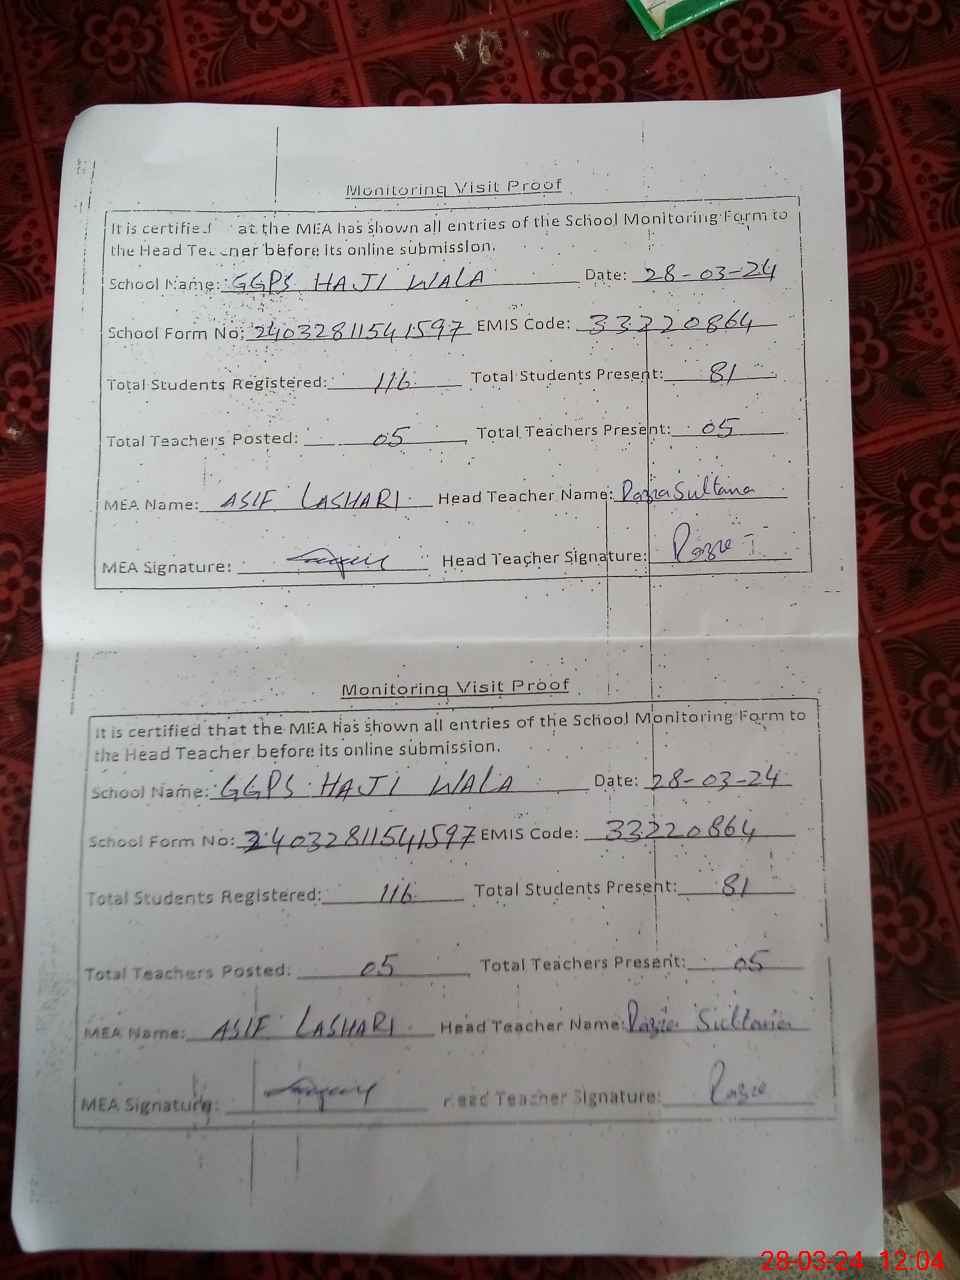 Monitoring Visit Proof
It is certified at the MEA has shown all entries of the School Monitoring Form to
the Head Teacher before its online submission.
School Name: GGPS HAJI WALA Date: 28-03-24
School Form No: 24032811541597 EMIS Code: 33220864
Total Students Registered: 116 Total Students Present: 81
Total Teachers Posted: 05 Total Teachers Present: 05
MEA Name: ASIF LASHARI Head Teacher Name: Razia Sultana
MEA Signature: Head Teacher Signature: Razia
Monitoring Visit Proof
It is certified that the MEA has shown all entries of the School Monitoring Form to
the Head Teacher before its online submission.
School Name: GGPS HAJI WALA Date: 28-03-24
School Form No: 24032811541597 EMIS Code: 33220864
Total Students Registered: 116 Total Students Present: 81
Total Teachers Posted: 05 Total Teachers Present: 05
MEA Name: ASIF LASHARI Head Teacher Name: Razia Sultana
MEA Signature: Head Teacher Signature: Razia
28-03-24 12:04